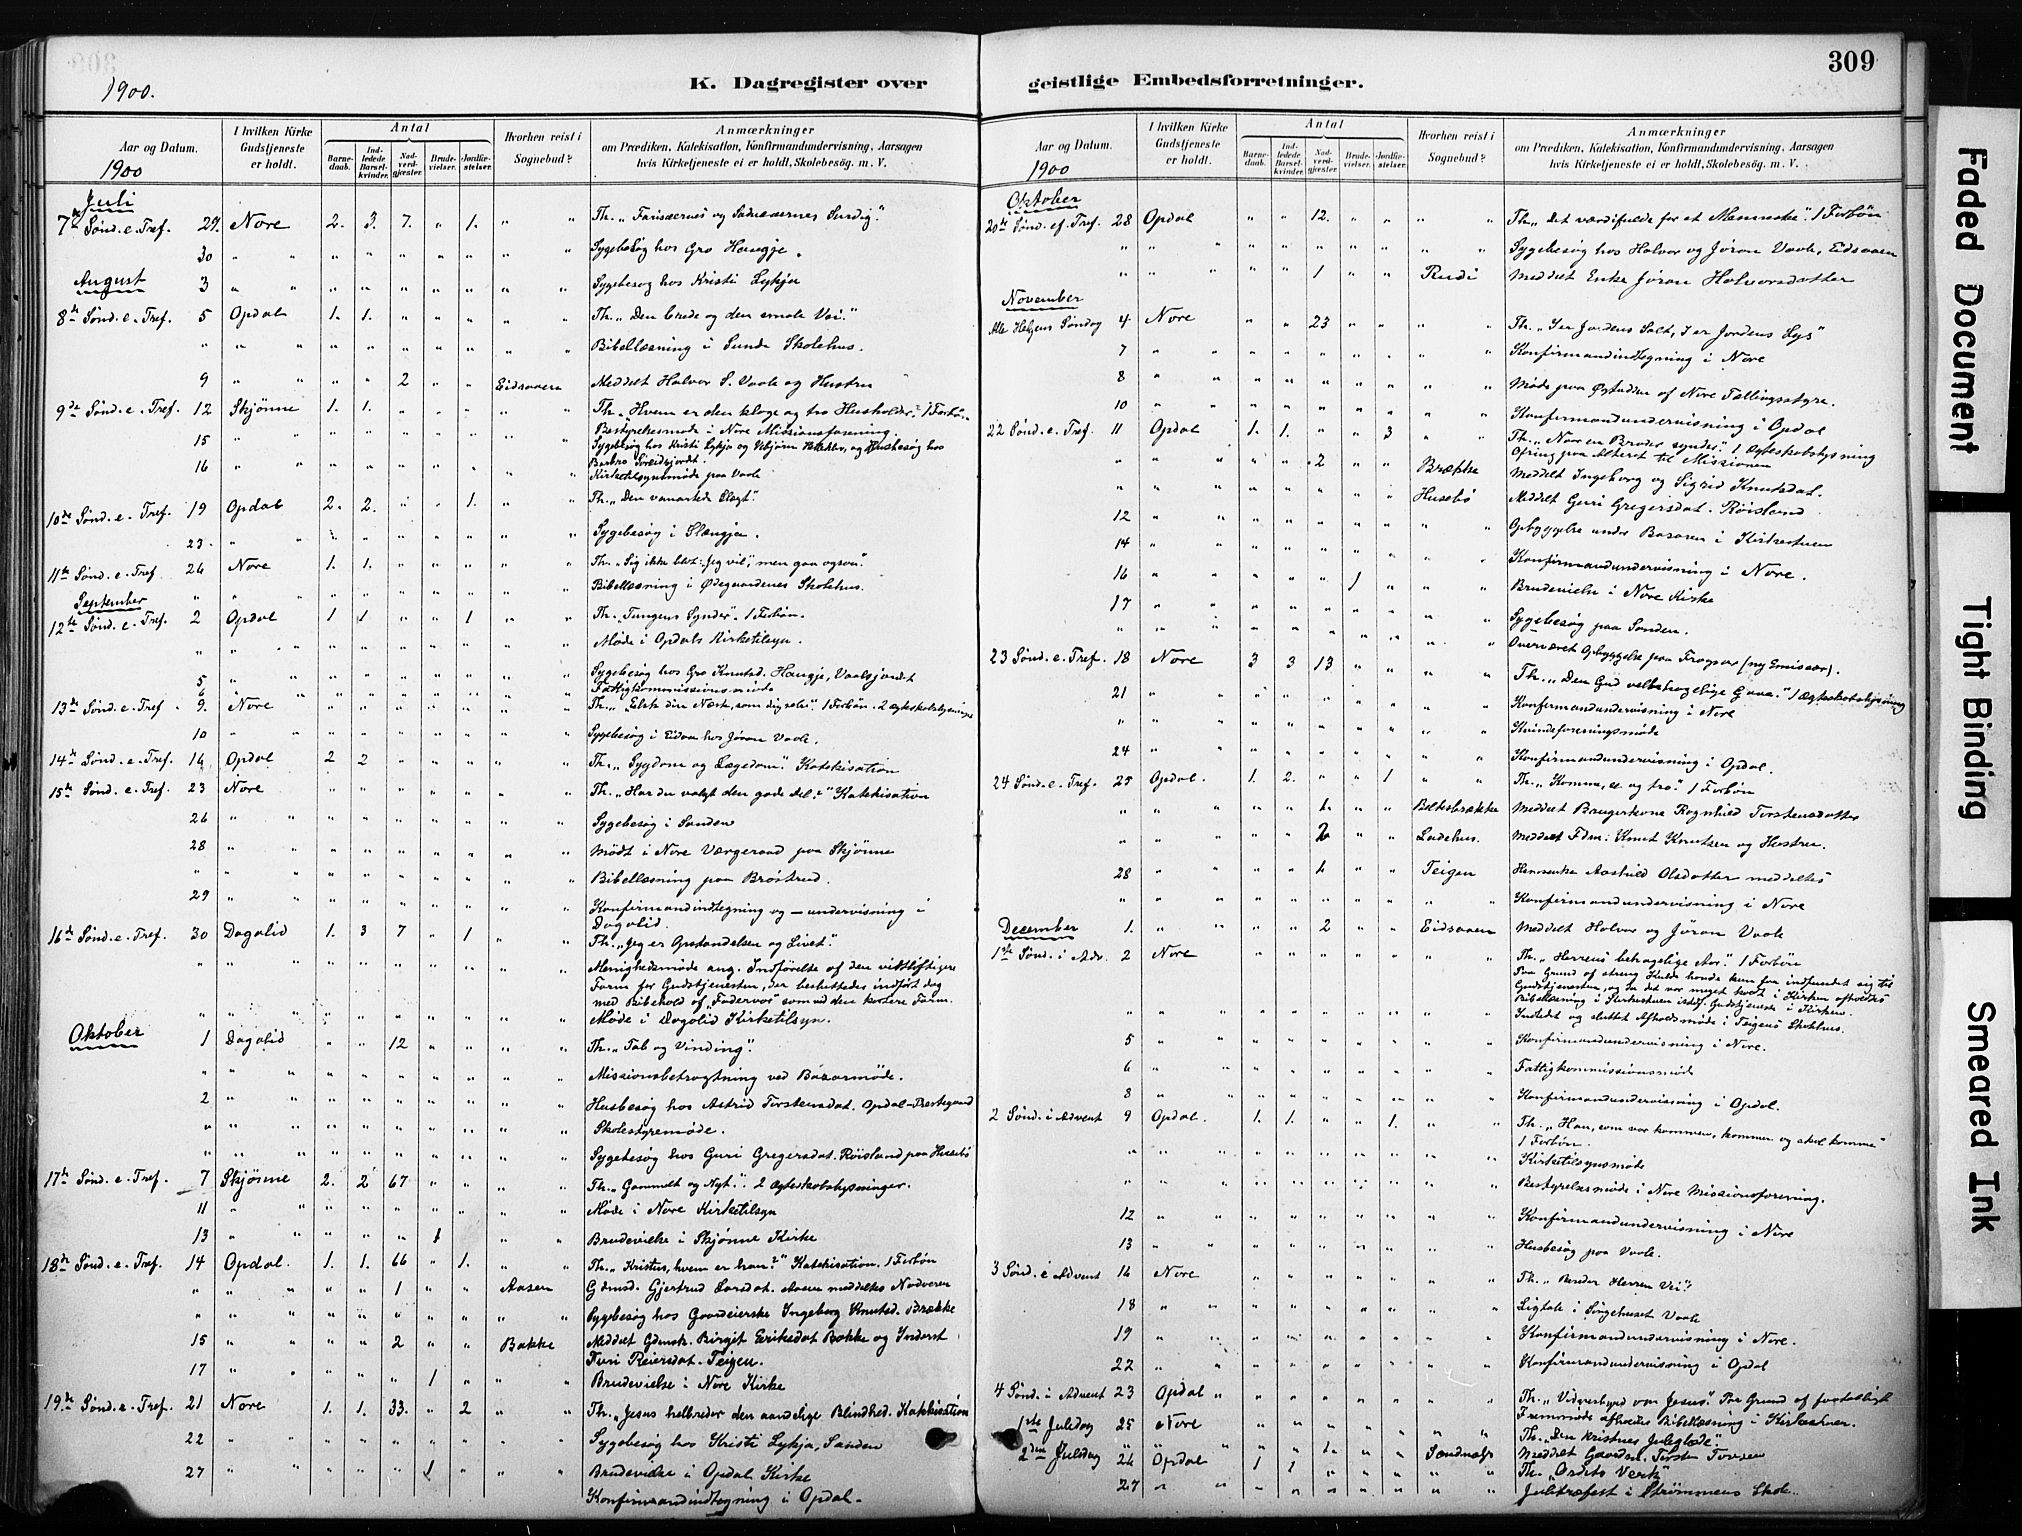 309
1900.
K. Dagregister over
Aar og Datum.
I hvilken Kirke Gudstjeneste er holdt.
Antal
Barne-daab.
Ind-ledede Barsel-kvinder.
Nad-verd-gjæster.
Brude-vielser.
Jordfæ-stelser.
Hvorhen reist i Sognebud?
Anmærkninger
om Prædiken, Katekisation, Konfirmandundervisning, Aarsagen
hvis Kirketjeneste ei er holdt, Skolebesøg. m. V.
1900
Juli
7de Sønd. e. Tref. 29. Nore 2. 3. 7. " 1. " " Th. "Farisæernes og Saducæernes Surdeig."
30 " " " " " " " " " Sygebesøg hos Gro Haugje.
August
3 " " " " " " " " " Sygebesøg hos Kristi Lykja
8de Sønd. e. Tref. 5 Opdal 1. 1. " " " " " Th. "Den brede og den smale Vei."
" " " " " " " " " " Bibellæsning i Sunde Skolehus.
9 " " " " 2 " " Eidsaaen Meddelt Halvor S. Vaale og Hustru
9de Sønd. e. Tref. 12 Skjønne 1. 1. " " " " " Th. "Hvem er den kloge og tro Husholder?" 1 Forbøn
Bestyrelsesmøde i Nore Missionsforening.
15 " " " " " " " " " Sygebesøg hos Kristi Lykja og
16 " " " " " " " " " Kirketilsynsmøde paa Vaale
10de Sønd. e. Tref. 19 Opdal 2. 2. " " 1. " " Th. "Den vanartede Slægt".
23. " " " " " " " " " Sygebesøg i Slængja.
11te Sønd. e. Tref. 26 Nore 1. 1. " " " " " Th. "Sig ikke blot: Jeg vil, men gaa ogsaa".
" " " " " " " " " " Bibellæsning i Ødegaardenes Skolehus.
September
12te Sønd. e. Tref. 2 Opdal 1 1 " " 1 " " Th. "Tungens Synder". 1 Forbøn.
" " " " " " " " " " Møde i Opdals Kirketilsyn.
5 " " " " " " " " " Sygebesøg hos Gro Knutsd. Haugje, Vaalsjordet
6 " " " " " " " " " Fattigkommissionsmøde
13de Sønd. e. Tref. 9. Nore " " " " " " " Th. "Elsk din Næste, som dig selv". 1 Forbøn. 2 Ægteskabslysninger
10 " " " " " " " " " Sygebesøg i Eidaa hos Jøran Vaale.
14de Sønd. e. Tref. 16 Opdal 2 2 " " " " " Th. "Sygdom og Lægedom". Katekisation
15de Sønd. e. Tref. 23 Nore " " " " " " " Th. "Har du valgt den gode del?" Katekisation
26 " " " " " " " " " Sygebesøg i Sanden
28 " " " " " " " " " Mødt i Nore Værgeraad paa Skjønne
" " " " " " " " " " Bibellæsning paa Brøstrud.
29 " " " " " " " " " Konfirmandindtegning og – undervisning i
Dagalid.
16de Sønd. e. Tref. 30 Dagalid 1. 3 7 " 1 " " Th. "Jeg er Opstandelsen og Livet."
" " " " " " " " " " Menighedsmøde ang. Indførelse af den vidtløftigere
Form for Gudstjenesten, der besluttedes indført dog
med Bibehold af "Fadervor" som ved den kortere Form.
" " " " " " " " " " Møde i Dagalid Kirketilsyn.
Oktober
1 Dagalid " " 12 " " " " Th. "Tab og Vinding".
" " " " " " " " " " Missionsbetragtning ved Bazarmøde.
2 " " " " " " " " " Husbesøg hos Astrid Torstensdat. Opdal-Præstegaard
" " " " " " " " " " Skolestyremøde.
" " " " " " " " " " Sygebesøg hos Guri Gregersdat. Røisland paa Husebø
17de Sønd. e. Tref. 7 Skjønne 2. 2 67 " " " " Th. "Gammelt og Nyt". 2 Ægteskabslysninger.
11 " " " " " " " " " Møde i Nore Kirketilsyn
13 " " " " " 1 " " " Brudevielse i Skjønne Kirke
18de Sønd. e. Tref. 14 Opdal. 1. 1. 66 " 1. " " Th. "Kristus, hvem er han?" Katekisation. 1 Forbøn
" " " " " 1 " " Aasen Gdmd. Gjertrud Larsdat. Aasen meddeltes Nadveren
" " " " " " " " " " Sygebesøg hos Gaardeierske Ingeborg Knutsd. Brække
15 " " " " 2 " " Bakke Meddelt Gdmsk. Birgit Eriksdat. Bakke og Inderst
Turi Reiersdat. Teigen.
17 " " " " " 1 " " " Brudevielse i Nore Kirke
19de Sønd. e. Tref. 21 Nore 1. 1. 33. " 2 " " Th. "Jesus helbreder den aandelige Blindhed. Katekisation
22 " " " " " " " " " Sygebesøg hos Kristi Lykja, Sanden
27 " " " " " 1 " " " Brudevielse i Opdal Kirke
Konfirmandindtegning i Opdal.
geistlige Embedsforretninger.
309
Aar og Datum.
I hvilken Kirke Gudstjeneste er holdt.
Antal
Barne-daab.
Ind-ledede Barsel-kvinder.
Nad-verd-gjæster.
Brude-vielser.
Jordfæ-stelser.
Hvorhen reist i Sognebud?
Anmærkninger
om Prædiken, Katekisation, Konfirmandundervisning, Aarsagen
hvis Kirketjeneste ei er holdt, Skolebesøg. m. V.
1900
Oktober
20de Sønd. ef. Tref. 28 Opdal " " 12. " " " " Th. "Det værdifulde for et Menneske". 1 Forbøn
" " " " " " " " " Sygebesøg hos Halvor og Jøran Vaale, Eidsaaen
" " " " " 1 " " Rudi Meddelt Enke Jøran Halvorsdatter
November
Alle Helgens Søndag 4 Nore " " 23 " " " " Th. "I er Jordens Salt, I er Jordens Lys"
7 " " " " " " " " " Konfirmandindtegning i Nore
8 " " " " " " " " " Møde paa af Nore Tællingsstyre.
10 " " " " " " " " " Konfirmandundervisning i Opdal
22 Sønd. e. Tref. 11 Opdal 1. 1. " " 3 " " Th. "Naar en Broder synder". 1 Ægteskabslysning
Ofring paa Alteret til Missionen
" " " " 2 " " Brække Meddelt Ingeborg og Sigrid Knutsdat.
" " " " " " " Husebø Meddelt Guri Gregersdat. Røisland
12 " " " " " " " " " Opbyggelse under Basaren i Kirkestuen
14 " " " " " " " " " Konfirmandundervisning i Nore.
16 " " " " " 1 " " " Brudevielse i Nore Kirke
17 " " " " " " " " " Sygebesøg paa Sanden.
" " " " " " " " " " Overværet Opbyggelse paa (ny Emissær).
23 Sønd. e. Tref. 18 Nore 3 3 13 " " " " Th. "Den Gud velbehagelige Gave." 1 Ægteskabslysning
21 " " " " " " " " " Konfirmandundervisning i Nore
" " " " " " " " " " Kvindeforeningsmøde
24 " " " " " " " " " Konfirmandundervisning i Opdal.
24 Sønd. e. Tref. 25 Opdal. 1. 2. " " 1 " " Th. "Komme, se og tro." 1 Forbøn
" " " " 1. " " Meddelt Brugerkone Ragnhild Torstensdatter
" " " " 2 " " Ladehus. Meddelt Fdm. Knut Knutsen og Hustru.
28 " " " " 1 " " Teigen Aashild Olsdatter meddeltes
" " " " " " " " " " Konfirmandundervisning i Nore
December
1. " " " " 2 " " Eidsaaen Meddelt Halvor og Jøran Vaale
1ste Sønd. i Adv. 2 Nore " " " " " " " Th. "Herrens behagelige Aar". 1 Forbøn
Paa Grund af streng Kulde havde kun faa indfundet sig til
Gudstjenesten, og da det var meget koldt i Kirken afholdtes
Bibellæsning i Kirkestuen istdf. Gudstjeneste i Kirken.
" " " " " " " " " Indledet og sluttet Afholdsmøde i Teigens Skolhus.
5 " " " " " " " " " Konfirmandundervisning i Nore.
6 " " " " " " " " " Fattigkommissionsmøde
8 " " " " " " " " " Konfirmandundervisning i Opdal.
2 Sønd. i Advent 9 Opdal. 1. 1. " " 1. " " Th. "Han, som var kommen, kommer og skal komme"
1 Forbøn.
" " " " " " " " " Kirketilsynsmøde
" " " " " " " " " Bestyrelsesmøde i Nore Missionsforening.
12 " " " " " " " " " Konfirmandundervisning i Nore
13 " " " " " " " " " Husbesøg paa Vaale.
3 Sønd. i Advent 16 Nore " " " " " " " Th. "Bereder Herren Vei".
18 " " " " " " " " " Ligtale i Sørgehuset Vaale
19 " " " " " " " " " Konfirmandundervisning i Nore.
22 " " " " " " " " " Konfirmandundervisning i Opdal
4 Sønd. i Advent 23 Opdal " " " " " " " Th. "Vidnesbyrd om Jesus". Paa Grund af faatalligt
Fremmøde afholdes Bibellæsning i Kirkestuen.
1ste Juledag 25 Nore " " " " " " " Th. "Den kristnes Juleglæde".
" " " " 1. " " Meddelt Torsten
2den Juledag 26 Opdal 1 1 " " " " " Th. "Ordets Værk"
27 " " " " " " " " " Juletræfest i Strømmens Skole.
Faded Document
Tight Binding
Smeared Ink